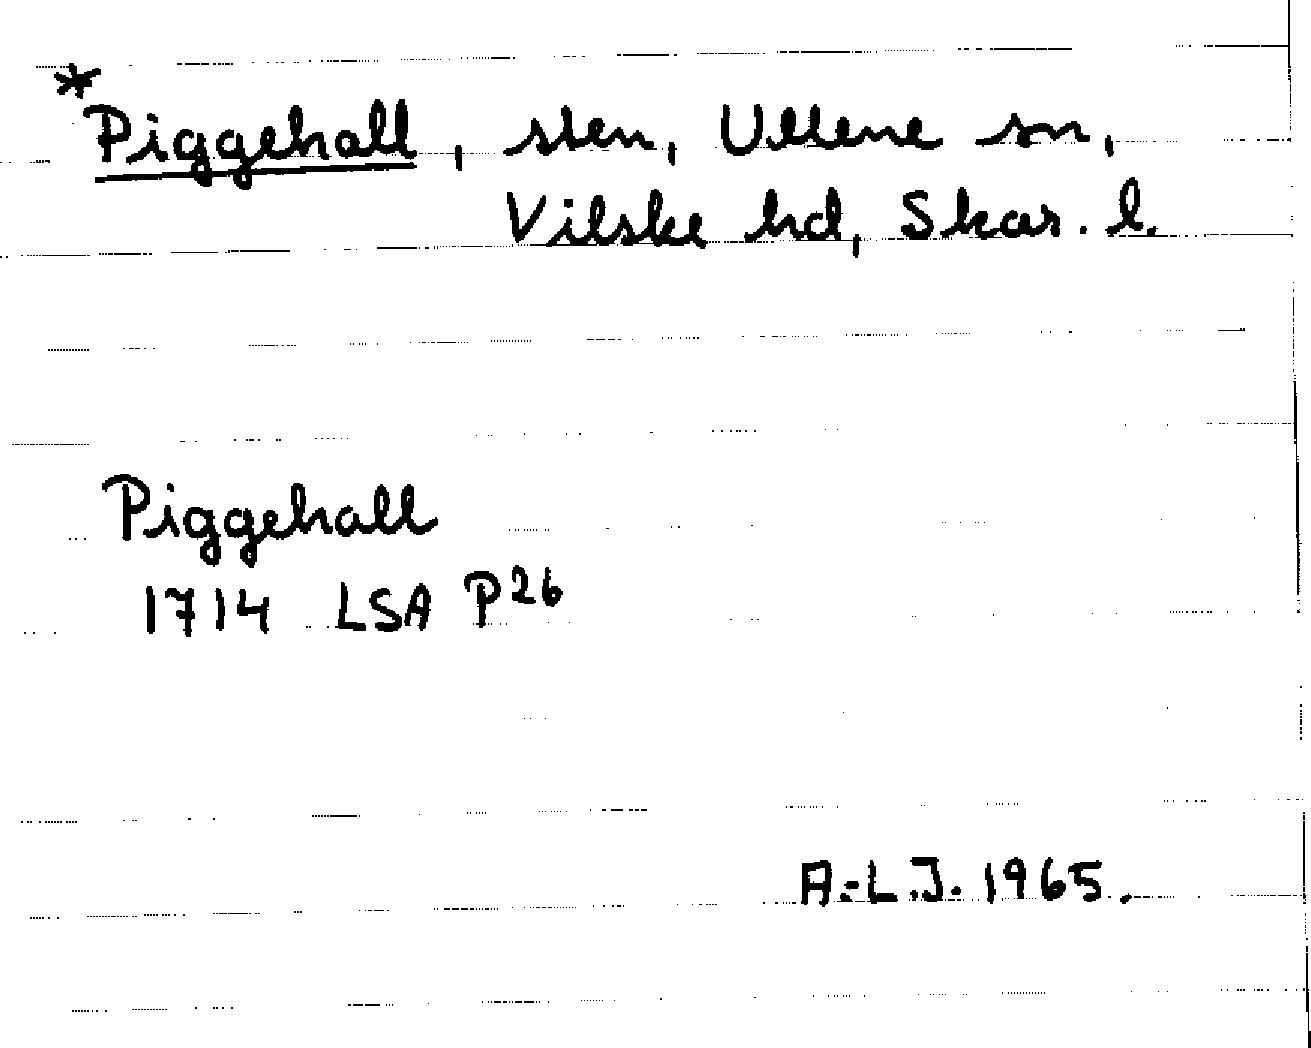 *Piggehall, sten, Ullene sn,
Vilske hd, Skar. l.
Piggehall
1714 LSA P26
A.-L.J. 1965.